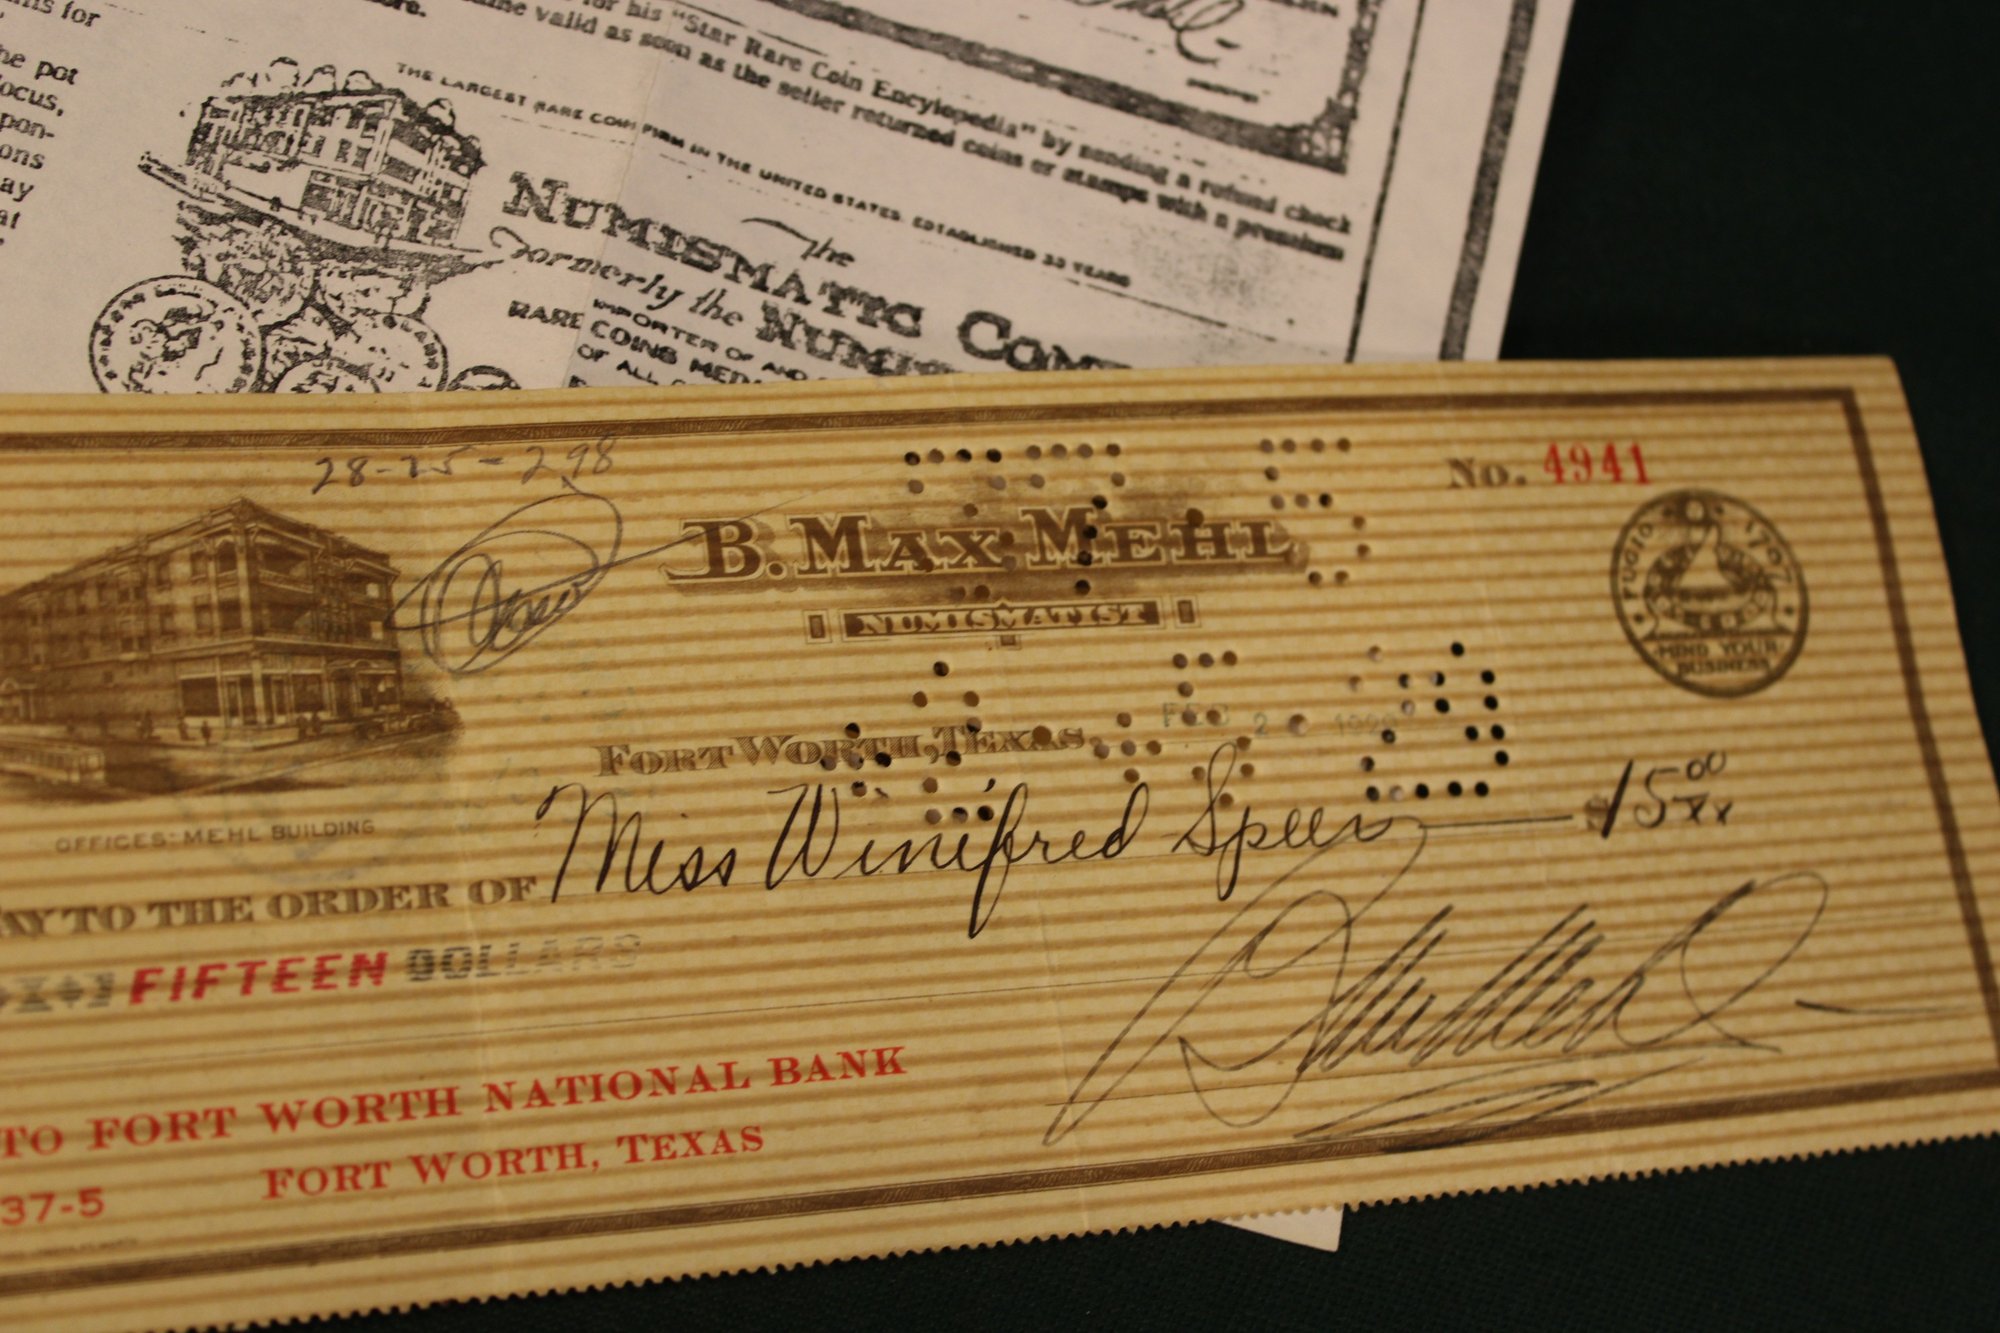 ns for
he pot
ocus,
pon-
ons
ay
at
for his "Star Rare Coin Encylopedia" by sending a refund check
valid as soon as the seller returned coins or stamps with a premium
THE LARGEST RARE COIN FIRM IN THE UNITED STATES. ESTABLISHED 33 YEARS
The
NUMISMATIC COM
Formerly the NUMIS
IMPORTER OF AND
RARE COINS MED
OF ALL
28-25-298
B. MAX MEHL
NUMISMATIST
No. 4941
FUGIO 1787
MIND YOUR
BUSINESS
FORT WORTH, TEXAS, FEB 2
OFFICES: MEHL BUILDING
AY TO THE ORDER OF Miss Winifred Speer $15 00/xx
FIFTEEN DOLLARS
TO FORT WORTH NATIONAL BANK
FORT WORTH, TEXAS
37-5